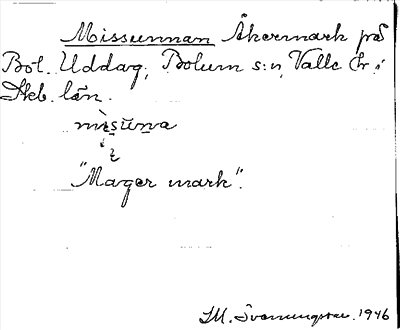 Missunnan Åkermark på
Bol. Uddag, Bolum s:n, Valle hr i
Skb. län.
misuna
"Mager mark".
1946